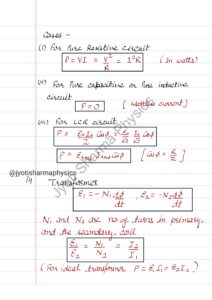 Cases -
(i) For Pure Resistive Circuit
P = VI = V²/R = I²R [In watts]
(ii) For Pure capacitive or Pure inductive
circuit
P = 0 [Wattless current]
(iii) For LCR circuit
P = E₀I₀/2 Cosϕ = E₀/√2 I₀/√2 Cosϕ
P = Erms Irms Cosϕ [Cosϕ = R/Z]
@jyotisharmaphysics
Transformer
E₁ = -N₁ dϕ/dt , E₂ = -N₂ dϕ/dt
N₁ and N₂ are no of turns in primary
and the secondary coil
E₁/E₂ = N₁/N₂ = I₂/I₁
(For ideal transformer P = E₁I₁ = E₂I₂)
Jyoti Sharma Physics